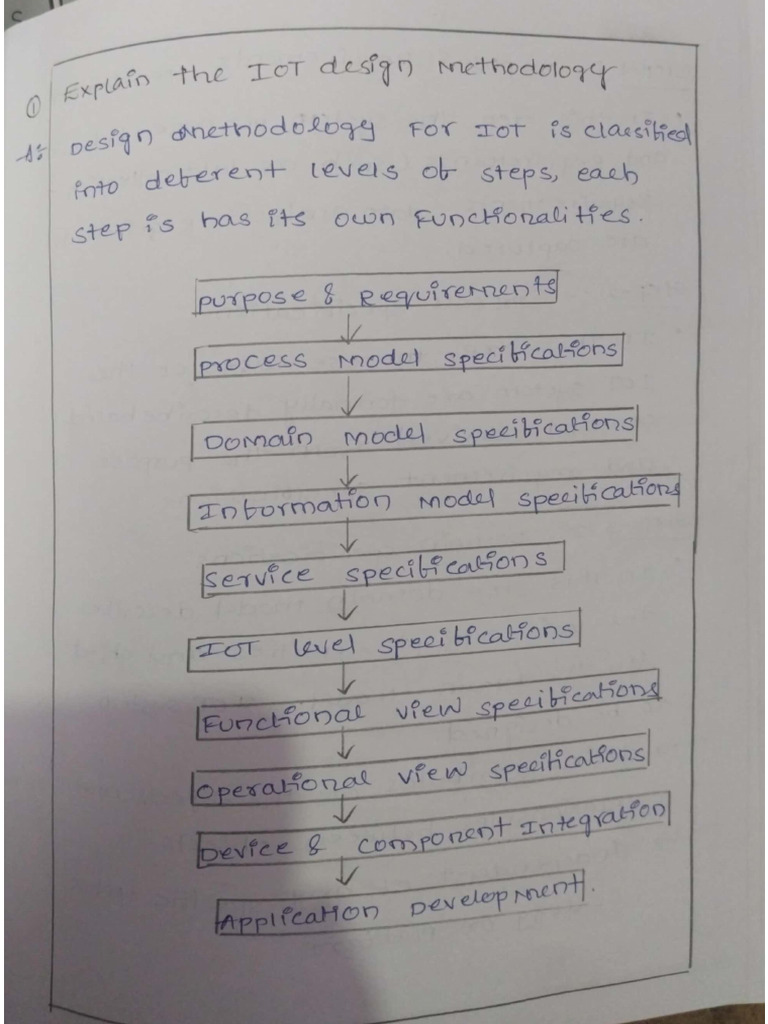 ① Explain the IOT design methodology
A: Design methodology For IOT is classified
into deferent levels of steps, each
step is has its own Functionalities.
Purpose & Requirements
Process Model specifications
Domain Model specifications
Information Model specifications
Service specifications
IOT level specifications
Functional view specifications
Operational view specifications
Device & component Integration
Application Development.